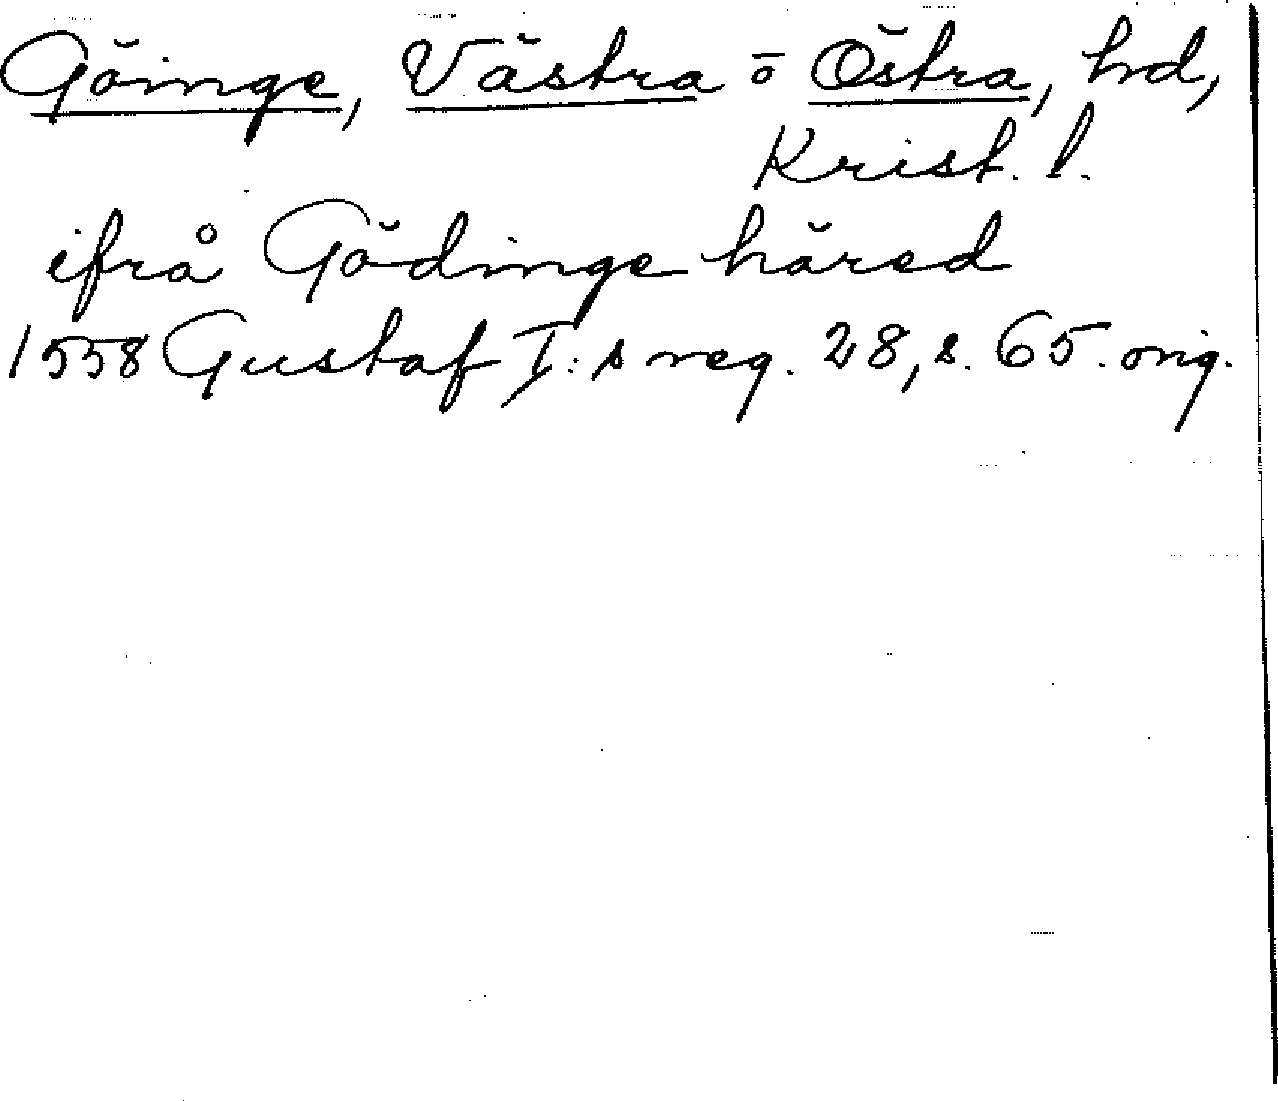 Göinge, Västra o Östra, hd,
Krist. l.
ifrå Gödinge häred
1558 Gustaf I:s reg. 28, s. 65. orig.